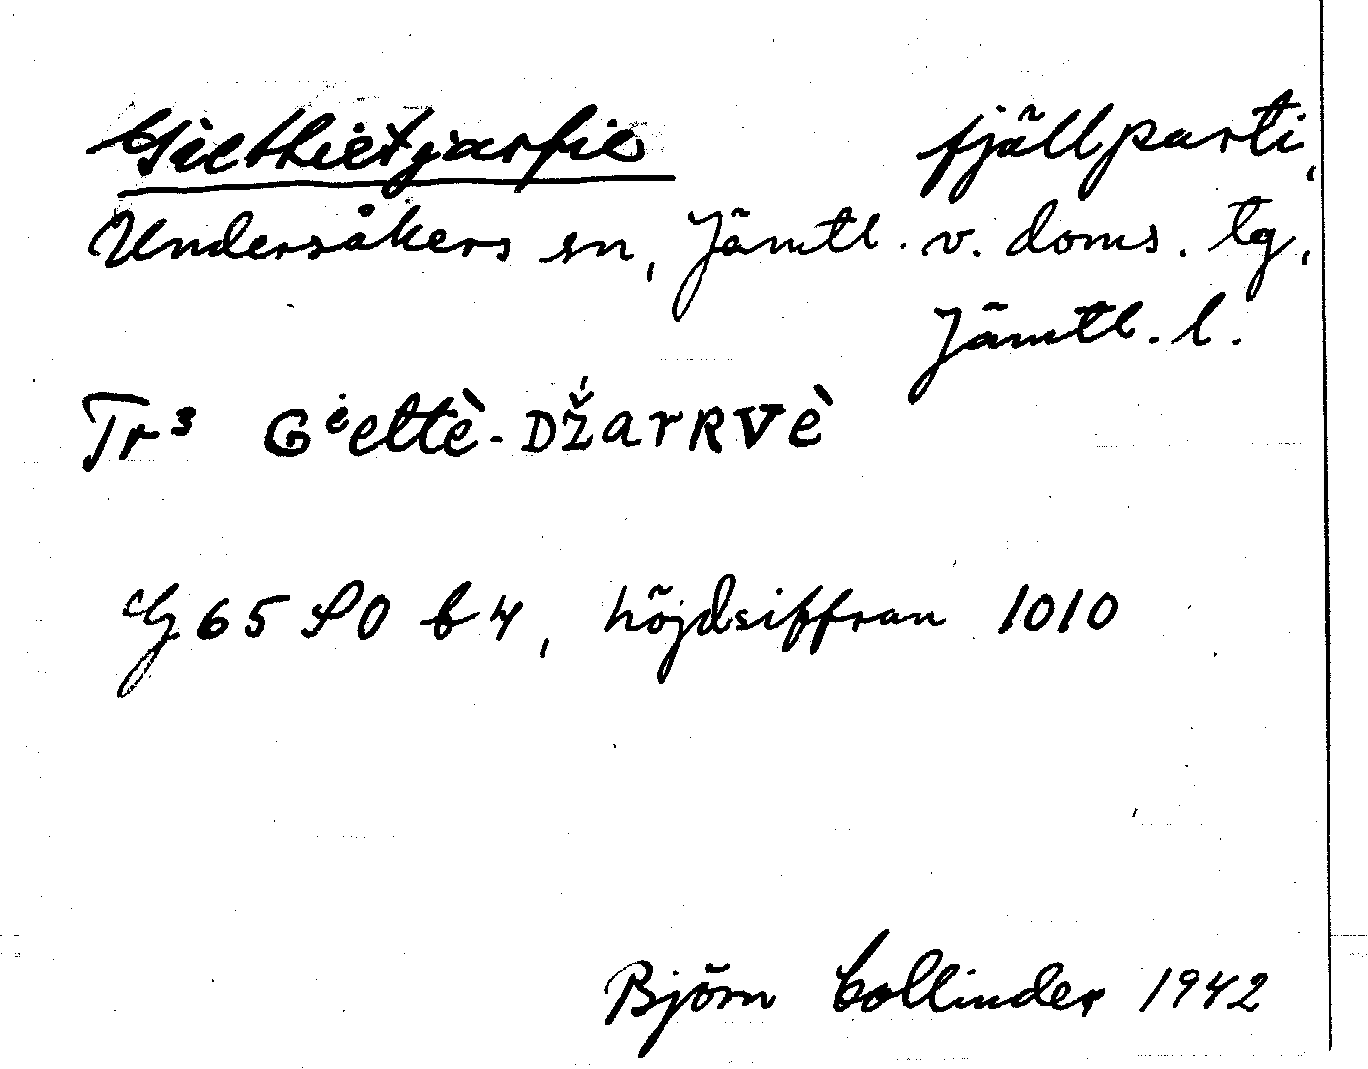 Giethietjarfie fjällparti,
Undersåkers sn, Jämtl. v. doms. tg,
Jämtl. l.
Tr³ Gⁱettè-Dž́arRvè
G 65 SO b 4, höjdsiffran 1010
Björn Collinder 1942